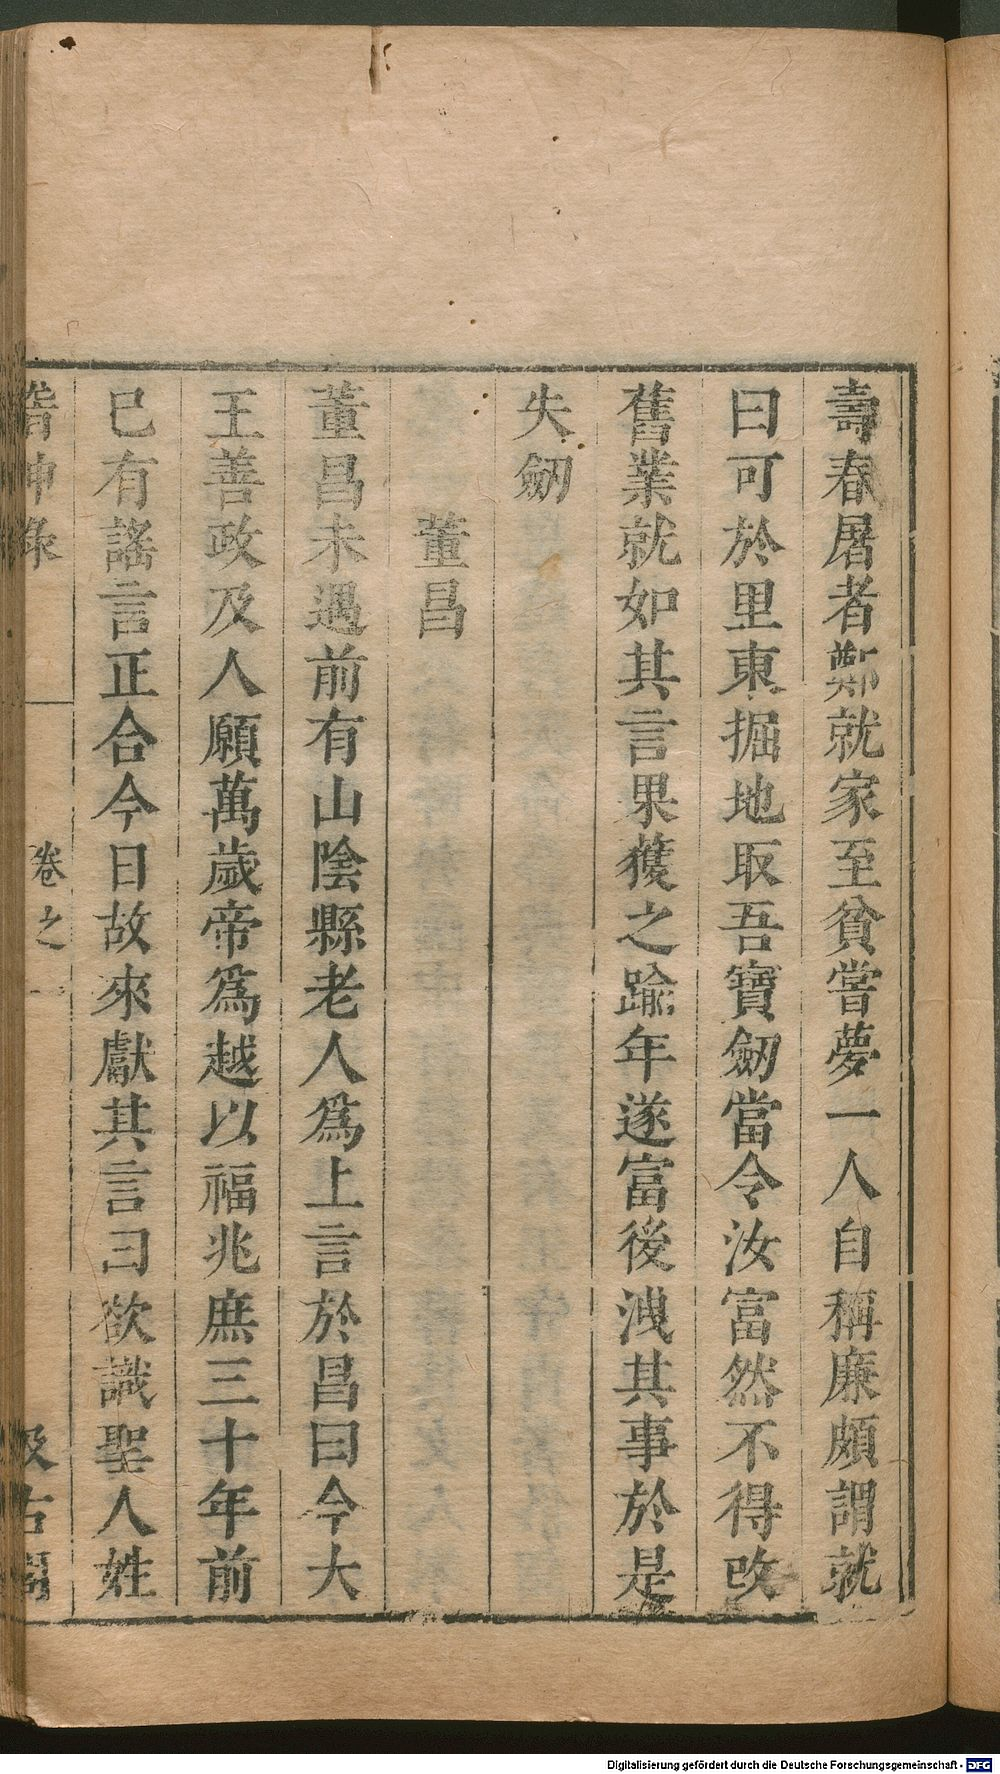 壽春屠者鄭就家至貧嘗夢一人自稱廉頗謂就
曰可於里東掘地取吾寶劒當令汝富然不得改
舊業就如其言果獲之踰年遂富後洩其事於是
失劒
董昌
董昌未遇前有山陰縣老人爲上言於昌曰今大
王善政及人願萬歲帝爲越以福兆庶三十年前
已有謠言正合今日故來獻其言曰欲識聖人姓
稽神录 卷之一 汲古閣
Digitalisierung gefördert durch die Deutsche Forschungsgemeinschaft - DFG